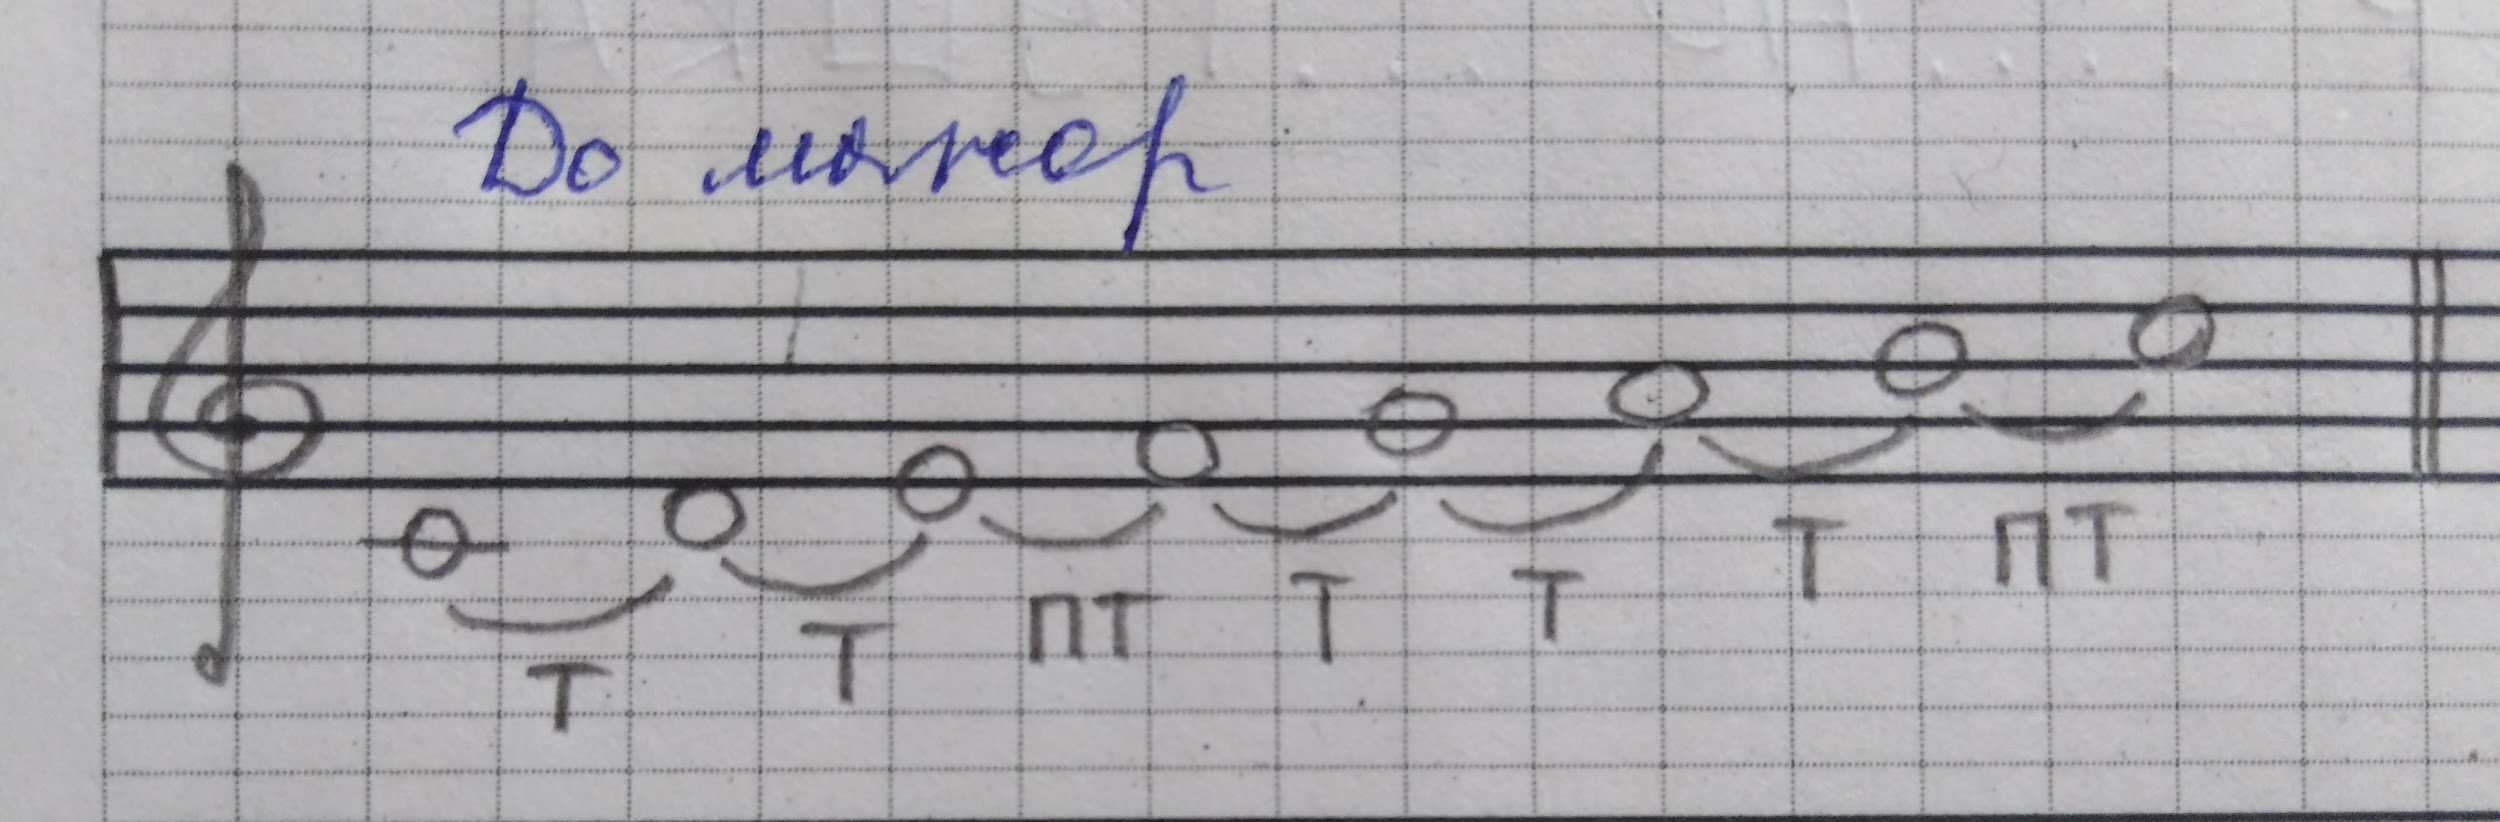 До мажор
Т Т ПТ Т Т Т ПТ